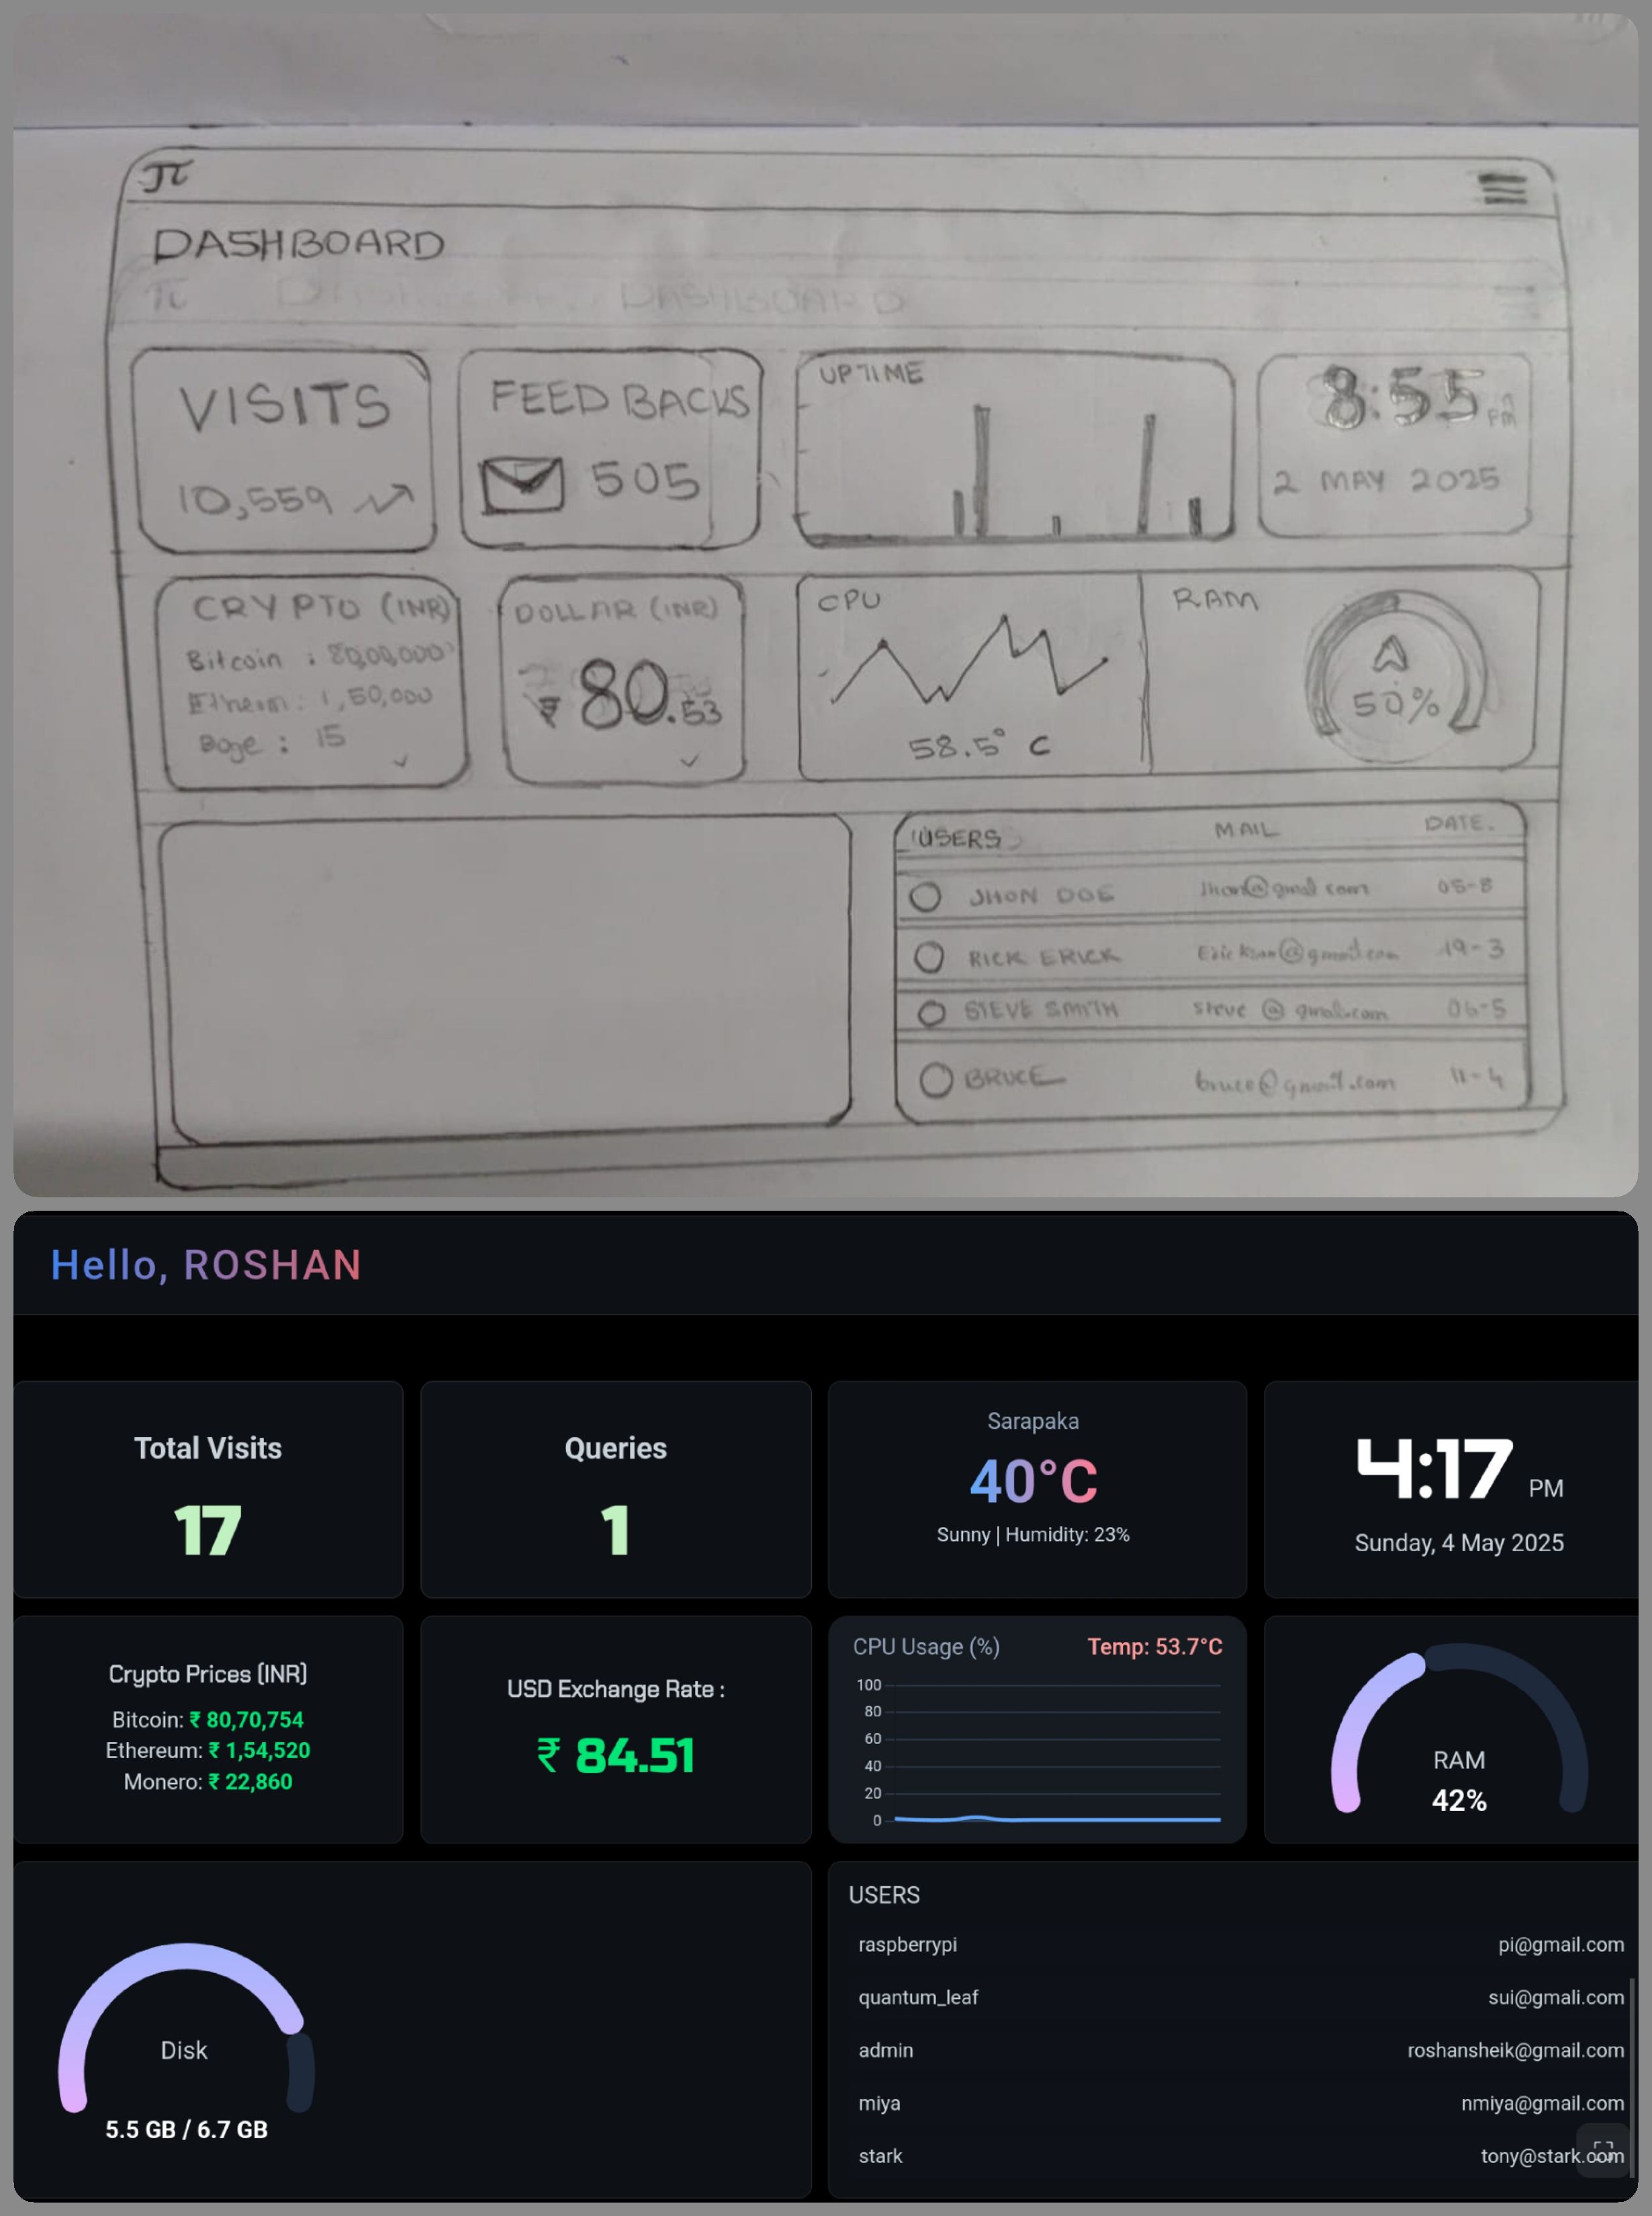 π
DASHBOARD
π DASHBOARD
VISITS
10,559
FEED BACKS
505
UPTIME
8:55 PM
2 MAY 2025
CRYPTO (INR)
Bitcoin : 80,00,000
: 1,50,000
Doge : 15
DOLLAR (INR)
₹ 80.53
CPU
58.5° C
RAM
50%
USERS MAIL DATE.
JHON DOE 05-8
RICK ERICK 19-3
STEVE SMITH steve @ gmail.com 06-5
BRUCE bruce@gmail.com 11-4
Hello, ROSHAN
Total Visits
17
Queries
1
Sarapaka
40°C
Sunny | Humidity: 23%
4:17 PM
Sunday, 4 May 2025
Crypto Prices (INR)
Bitcoin: ₹ 80,70,754
Ethereum: ₹ 1,54,520
Monero: ₹ 22,860
USD Exchange Rate :
₹ 84.51
CPU Usage (%) Temp: 53.7°C
100
80
60
40
20
0
RAM
42%
Disk
5.5 GB / 6.7 GB
USERS
raspberrypi pi@gmail.com
quantum_leaf sui@gmali.com
admin roshansheik@gmail.com
miya nmiya@gmail.com
stark tony@stark.com